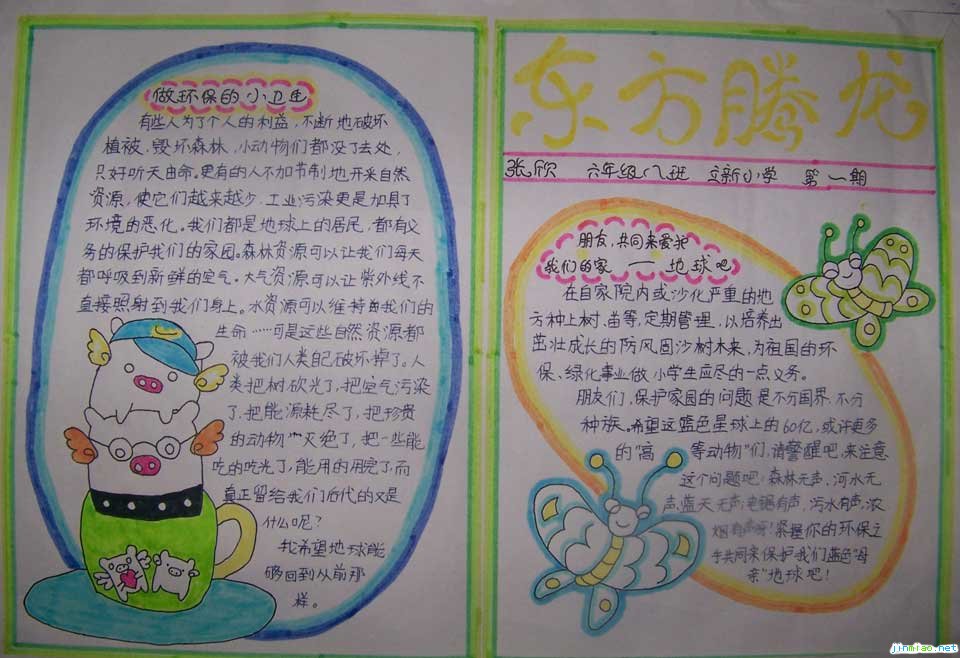 做环保的小卫生
有些人为了个人的利益,不断地破坏
植被,毁坏森林,小动物们都没了去处,
只好听天由命.更有的人不加节制地开来自然
资源,使它们越来越少.工业污染更是加具了
环境的恶化。我们都是地球上的居民,都有义
务的保护我们的家园。森林资源可以让我们每天
都呼吸到新鲜的空气。大气资源可以让紫外线不
直接照射到我们身上。水资源可以维持我们的
生命……可是这些自然资源都
被我们人类自己破坏掉了。人
类把树砍光了,把空气污染
了.把能源耗尽了,把珍贵
的动物灭绝了,把一些能
吃的吃光了,能用的用完了.而
真正留给我们后代的又是
什么呢?
我希望地球能
够回到从前那
样。
东方腾龙
张欣 六年级八班 立新小学 第一期
朋友,共同来爱护
我们的家——地球吧
在自家院内或沙化严重的地
方种上树.苗等,定期管理,以培养出
茁壮成长的防风固沙树木来,为祖国的环
保、绿化事业做小学生应尽的一点义务。
朋友们,保护家园的问题是不分国界,不分
种族。希望这蓝色星球上的60亿,或许更多
的"高等动物"们,请警醒吧,来注意
这个问题吧!森林无声,河水无
声,蓝天无声;电锯有声,污水有声,浓
烟有声呀!紧握你的环保之
手共同来保护我们蓝色"母
亲"地球吧!
jinmiao.net